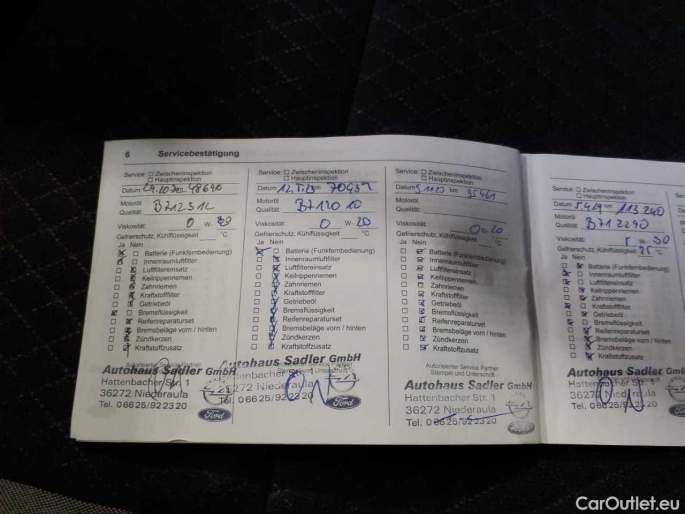 6 Servicebestätigung
Service: Zwischeninspektion
Hauptinspektion
Datum km 48690
Motoröl
Qualität:
Viskosität: 0 W-
Gefrierschutz, Kühlflüssigkeit °C
Ja Nein
Batterie (Funkfernbedienung)
Innenraumluftfilter
Luftfiltereinsatz
Keilrippenriemen
Zahnriemen
Kraftstofffilter
Getriebeöl
Bremsflüssigkeit
Reifenreparaturset
Bremsbeläge vorn / hinten
Zündkerzen
Kraftstoffzusatz
Autohaus Sadler GmbH
Hattenbacher Str. 1
36272 Niederaula
Tel. 06625/922320
Ford
Service: Zwischeninspektion
Hauptinspektion
Datum km
Motoröl
Qualität: B7120 10
Viskosität: 0 W-20
Gefrierschutz, Kühlflüssigkeit °C
Ja Nein
Batterie (Funkfernbedienung)
Innenraumluftfilter
Luftfiltereinsatz
Keilrippenriemen
Zahnriemen
Kraftstofffilter
Getriebeöl
Bremsflüssigkeit
Reifenreparaturset
Bremsbeläge vorn / hinten
Zündkerzen
Kraftstoffzusatz
Autohaus Sadler GmbH
Hattenbacher Str. 1
36272 Niederaula
Tel. 06625/922320
Ford
Service: Zwischeninspektion
Hauptinspektion
Datum km 95461
Motoröl
Qualität:
Viskosität: 0-20
Gefrierschutz, Kühlflüssigkeit °C
Ja Nein
Batterie (Funkfernbedienung)
Innenraumluftfilter
Luftfiltereinsatz
Keilrippenriemen
Zahnriemen
Kraftstofffilter
Getriebeöl
Bremsflüssigkeit
Reifenreparaturset
Bremsbeläge vorn / hinten
Zündkerzen
Kraftstoffzusatz
Autorisierter Service Partner
Stempel und Unterschrift
Autohaus Sadler GmbH
Hattenbacher Str. 1
36272 Niederaula
Tel. 06625/922320
Service: Zwischeninspektion
Hauptinspektion
Datum km 113240
Motoröl
Qualität:
Viskosität:
Gefrierschutz, Kühlflüssigkeit
Ja Nein
Batterie (Funkfernbedienung)
Innenraumluftfilter
Luftfiltereinsatz
Keilrippenriemen
Zahnriemen
Kraftstofffilter
Getriebeöl
Bremsflüssigkeit
Reifenreparaturset
Bremsbeläge vorn / hinten
Zündkerzen
Kraftstoffzusatz
Autohaus Sadler GmbH
Hattenbacher Str. 1
36272 Niederaula
Tel. 06625/922320
CarOutlet.eu